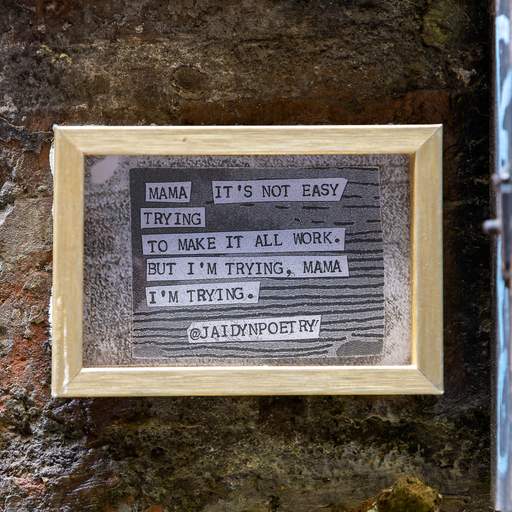 MAMA IT'S NOT EASY
TRYING
TO MAKE IT ALL WORK.
BUT I'M TRYING, MAMA
I'M TRYING.
@JAIDYNPOETRY